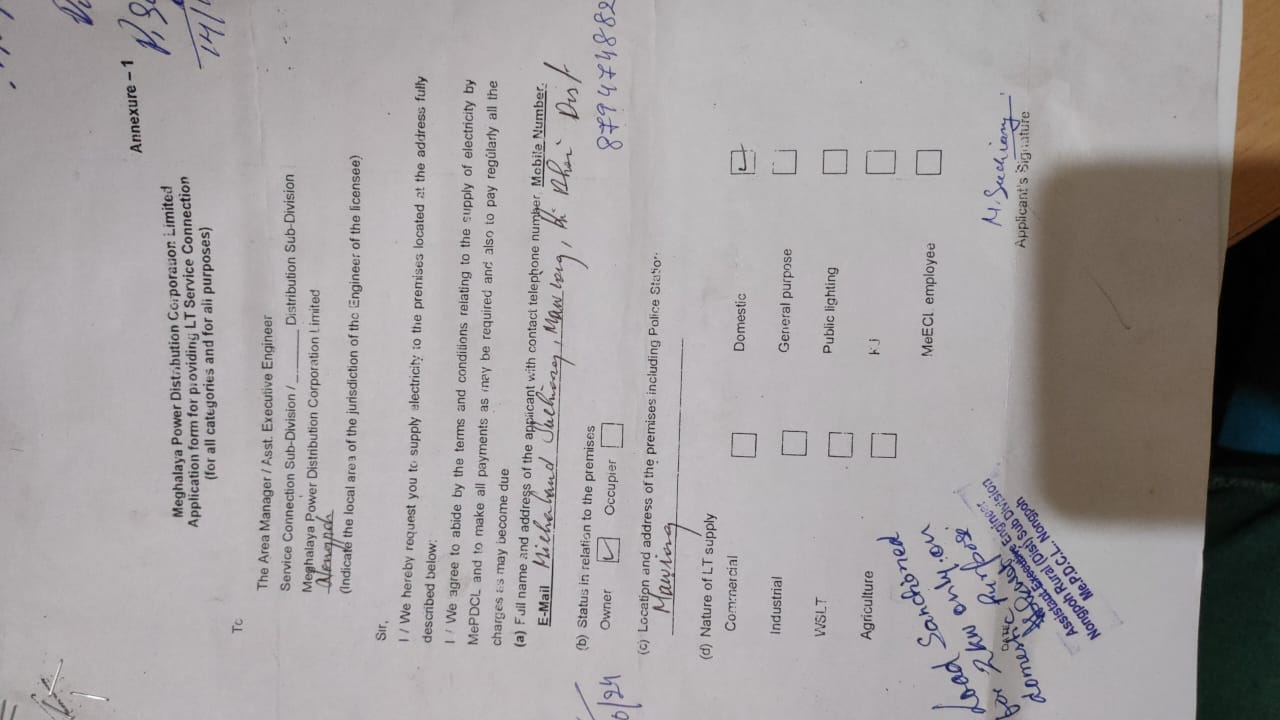 Annexure – 1
Meghalaya Power Distribution Corporation Limited
Application form for providing LT Service Connection
(for all categories and for all purposes)
To
The Area Manager / Asst. Executive Engineer
Service Connection Sub-Division / ______ Distribution Sub-Division
Meghalaya Power Distribution Corporation Limited
Nongpoh
(Indicate the local area of the jurisdiction of the Engineer of the licensee)
Sir,
I / We hereby request you to supply electricity to the premises located at the address fully
described below:
I / We agree to abide by the terms and conditions relating to the supply of electricity by
MePDCL and to make all payments as may be required and also to pay regularly all the
charges as may become due
(a) Full name and address of the applicant with contact telephone number, Mobile Number,
E-Mail Suchiang, Mawlong, Ri Bhoi Dist
8794774882
(b) Status in relation to the premises
Owner Occupier
(c) Location and address of the premises including Police Station
Mawlong
(d) Nature of LT supply
Commercial Domestic
Industrial General purpose
WSLT Public lighting
Agriculture KJ
MeECL employee
Load Sanctioned
for 2kw only, on
domestic purpose
DATE
Assistant Executive Engineer
Nongpoh Rural (Dist) Sub Division
Me.P.D.C.L., Nongpoh
M. Suchiang
Applicant's Signature